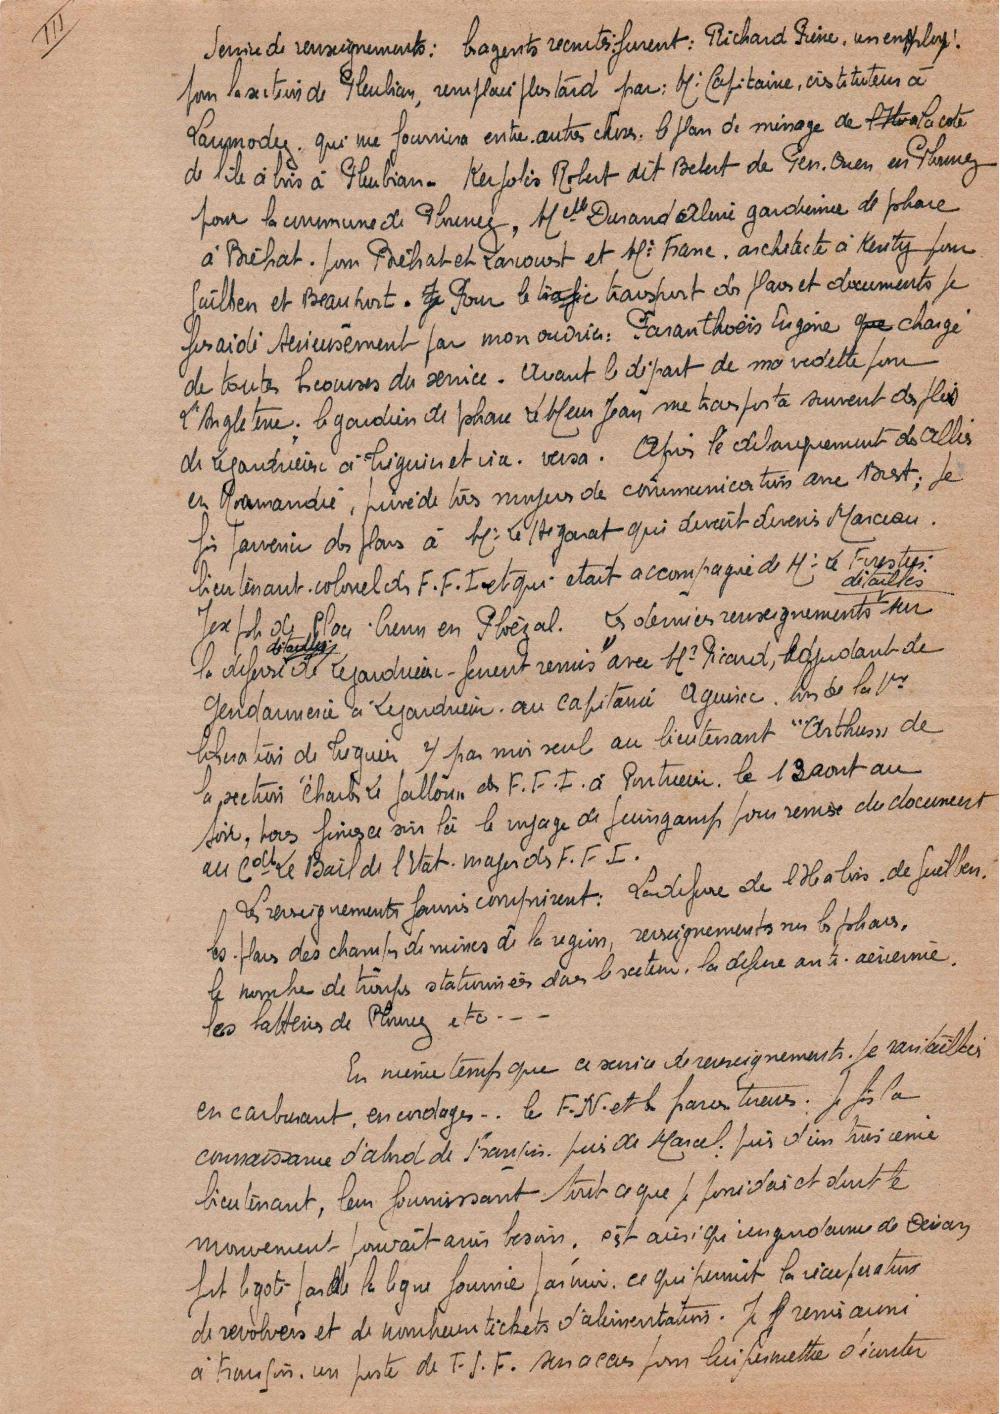 III
Service de renseignements: les agents recrutés furent: Richard Pierre, un employé.
pour le secteur de Pleubian, remplacé plus tard par: Mr Capitaine, instituteur à
Lanmodez. qui me fournira entre autres choses. le plan de minage de la cote
de l'ile à bois à Pleubian. Kerfolis Robert dit Bebert de Pen. Ouen en Plounez
pour la commune de Plounez, Melle Durand gardienne de phare
à Bréhat. pour Bréhat et Larcouest et Mr Franc. architecte à Kerity pour
Guilben et Beauport. Je Pour le trafic transport des plans et documents je
fus aidé sérieusement par mon ouvrier: Paranthoën Eugène que chargé
de toutes les courses du service. Avant le départ de ma vedette pour
l'Angleterre. le gardien de phare Le Meur Jean me transporta souvent des plis
de Lézardrieux à Tréguier et vice. versa. Après le débarquement des Alliés
en Normandie, privé de tous moyens de communications avec Brest; je
fis parvenir des plans à Mr Le Hégarat qui devait devenir Marceau.
lieutenant-colonel des F.F.I. et qui etait accompagné de Mr Le Forestier
Joseph de en Ploëzal. Les derniers renseignements détaillés sur
la défense détaillés de Lézardrieux. furent remis avec Mr Picard, Adjudant de
Gendarmerie à Lézardrieux. au capitaine lors de la 1ère
libération de Tréguier 2/ par moi seul au lieutenant "Arthur" de
la section "Charles Le Gallou" des F.F.I. à Pontrieux. le 13 aout au
soir, nous fimes ce soir là le voyage de Guingamp pour remise du document
au Cdt Le Bail de l'Etat. major des F.F.I.
Les renseignements fournis comprirent: La défense de l'Ile à bois. de Guilben.
les plans des champs de mines de la région, renseignements sur les phares.
le nombre de troupes stationnées dans le secteur. la défense anti-aérienne.
les batteries de Plounez etc - - -
En même temps que ce service de renseignements. je ravitaillais
en carburant, en cordages -. le F.N. et les francs tireurs. Je fis la
connaissance d'abord de François. puis de Marcel. puis d'un troisième
lieutenant, leur fournissant tout ce que je possédais et dont le
mouvement pouvait avoir besoin. c'est ainsi qu'un gendarme de
fut ligoté par de la ligne fournie par moi. ce qui permit la récupération
de revolvers et de nombreux tickets d'alimentation. Je remis aussi
à François. un poste de T.S.F. sur accus pour lui permettre d'écouter